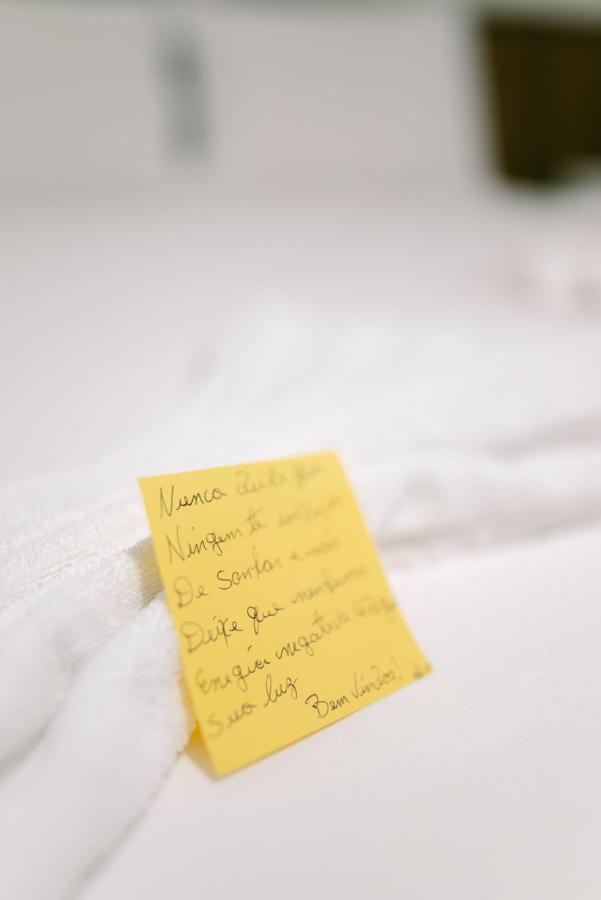 Nunca Deixe que
Ningem te
De Sonhar e não
Deixe que nenhuma
Enegia negativa
Sua luz
Bem Vindos!